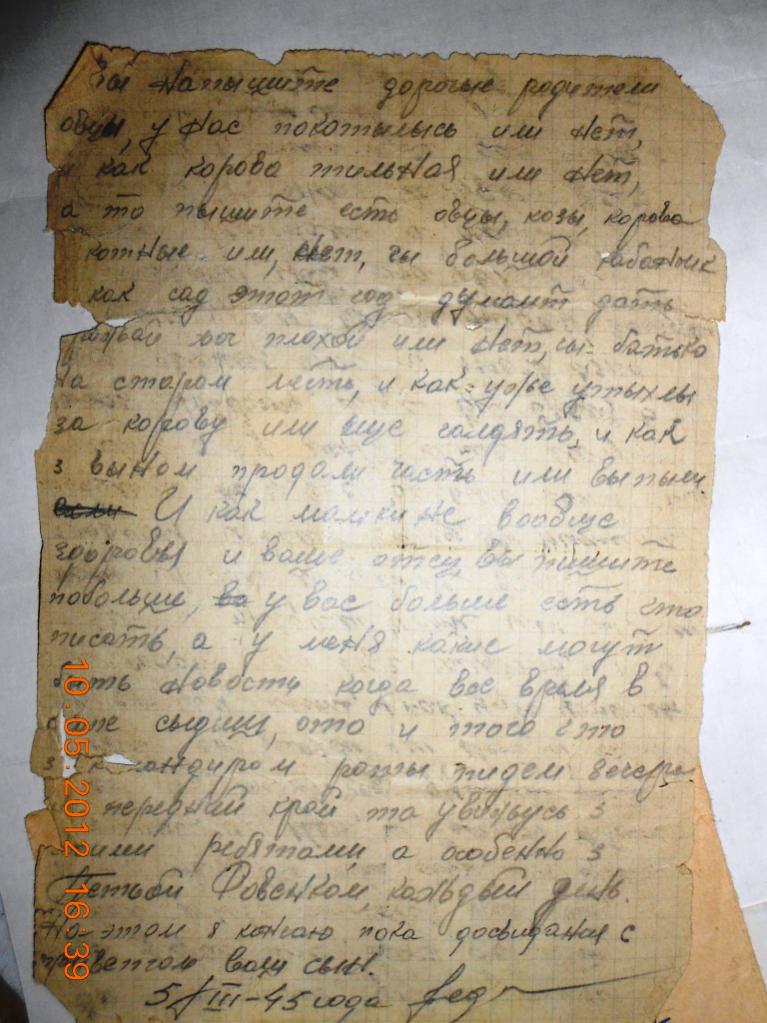 Вы напышите дорогие родители
овцы, у нас покотылысь или нет,
и как корова тильная или нет,
а то пышите есть овцы, козы, корова
котные или, нет, чы большой кабанчик
как сад этот год думаит дать
плохой или нет, чы батько
на старом месте, и как уже утыхлы
за корову или еще галдять, и как
з выном продали часть или выпыли
И как мамка и не вообще
здоровы и ваше отец, вы пишите
побольше, у вас больше есть что
писать, а у меня какие могут
быть новости когда все время в
сыдиш, ото и того что
з командиром роты пидем вечером
передний край та увижусь з
ребятами, а особенно з
Петьой Фовенком, кажьдый день.
На этом я кончаю пока досвидания с
приветом ваш сын.
5/III-45 года Фед
10.05.2012 16:39